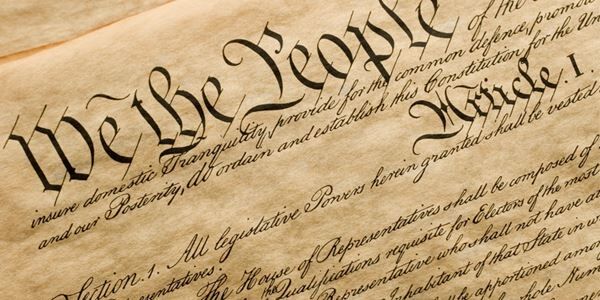 We the People of the
insure domestic Tranquility, provide for the common defence, promote
and our Posterity, do ordain and establish this Constitution for the Uni
Article. I.
Section. 1. All legislative Powers herein granted shall be vested
Representatives.
The House of Representatives shall be composed of
the Qualifications requisite for Electors of the most
Representative who shall not have at
Inhabitant of that State in w
be apportioned among
whole Num